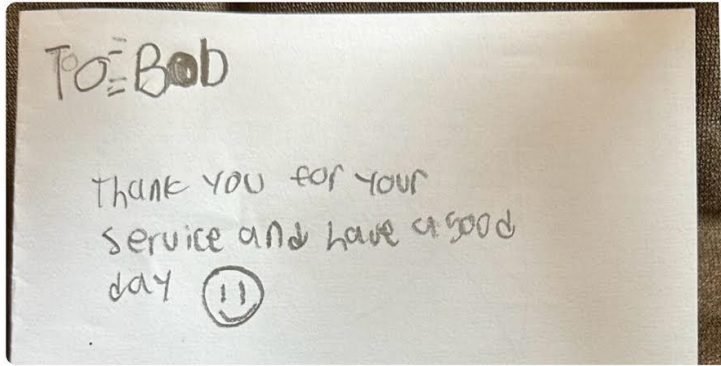 To Bob
Thank you for your
service and have a good
day